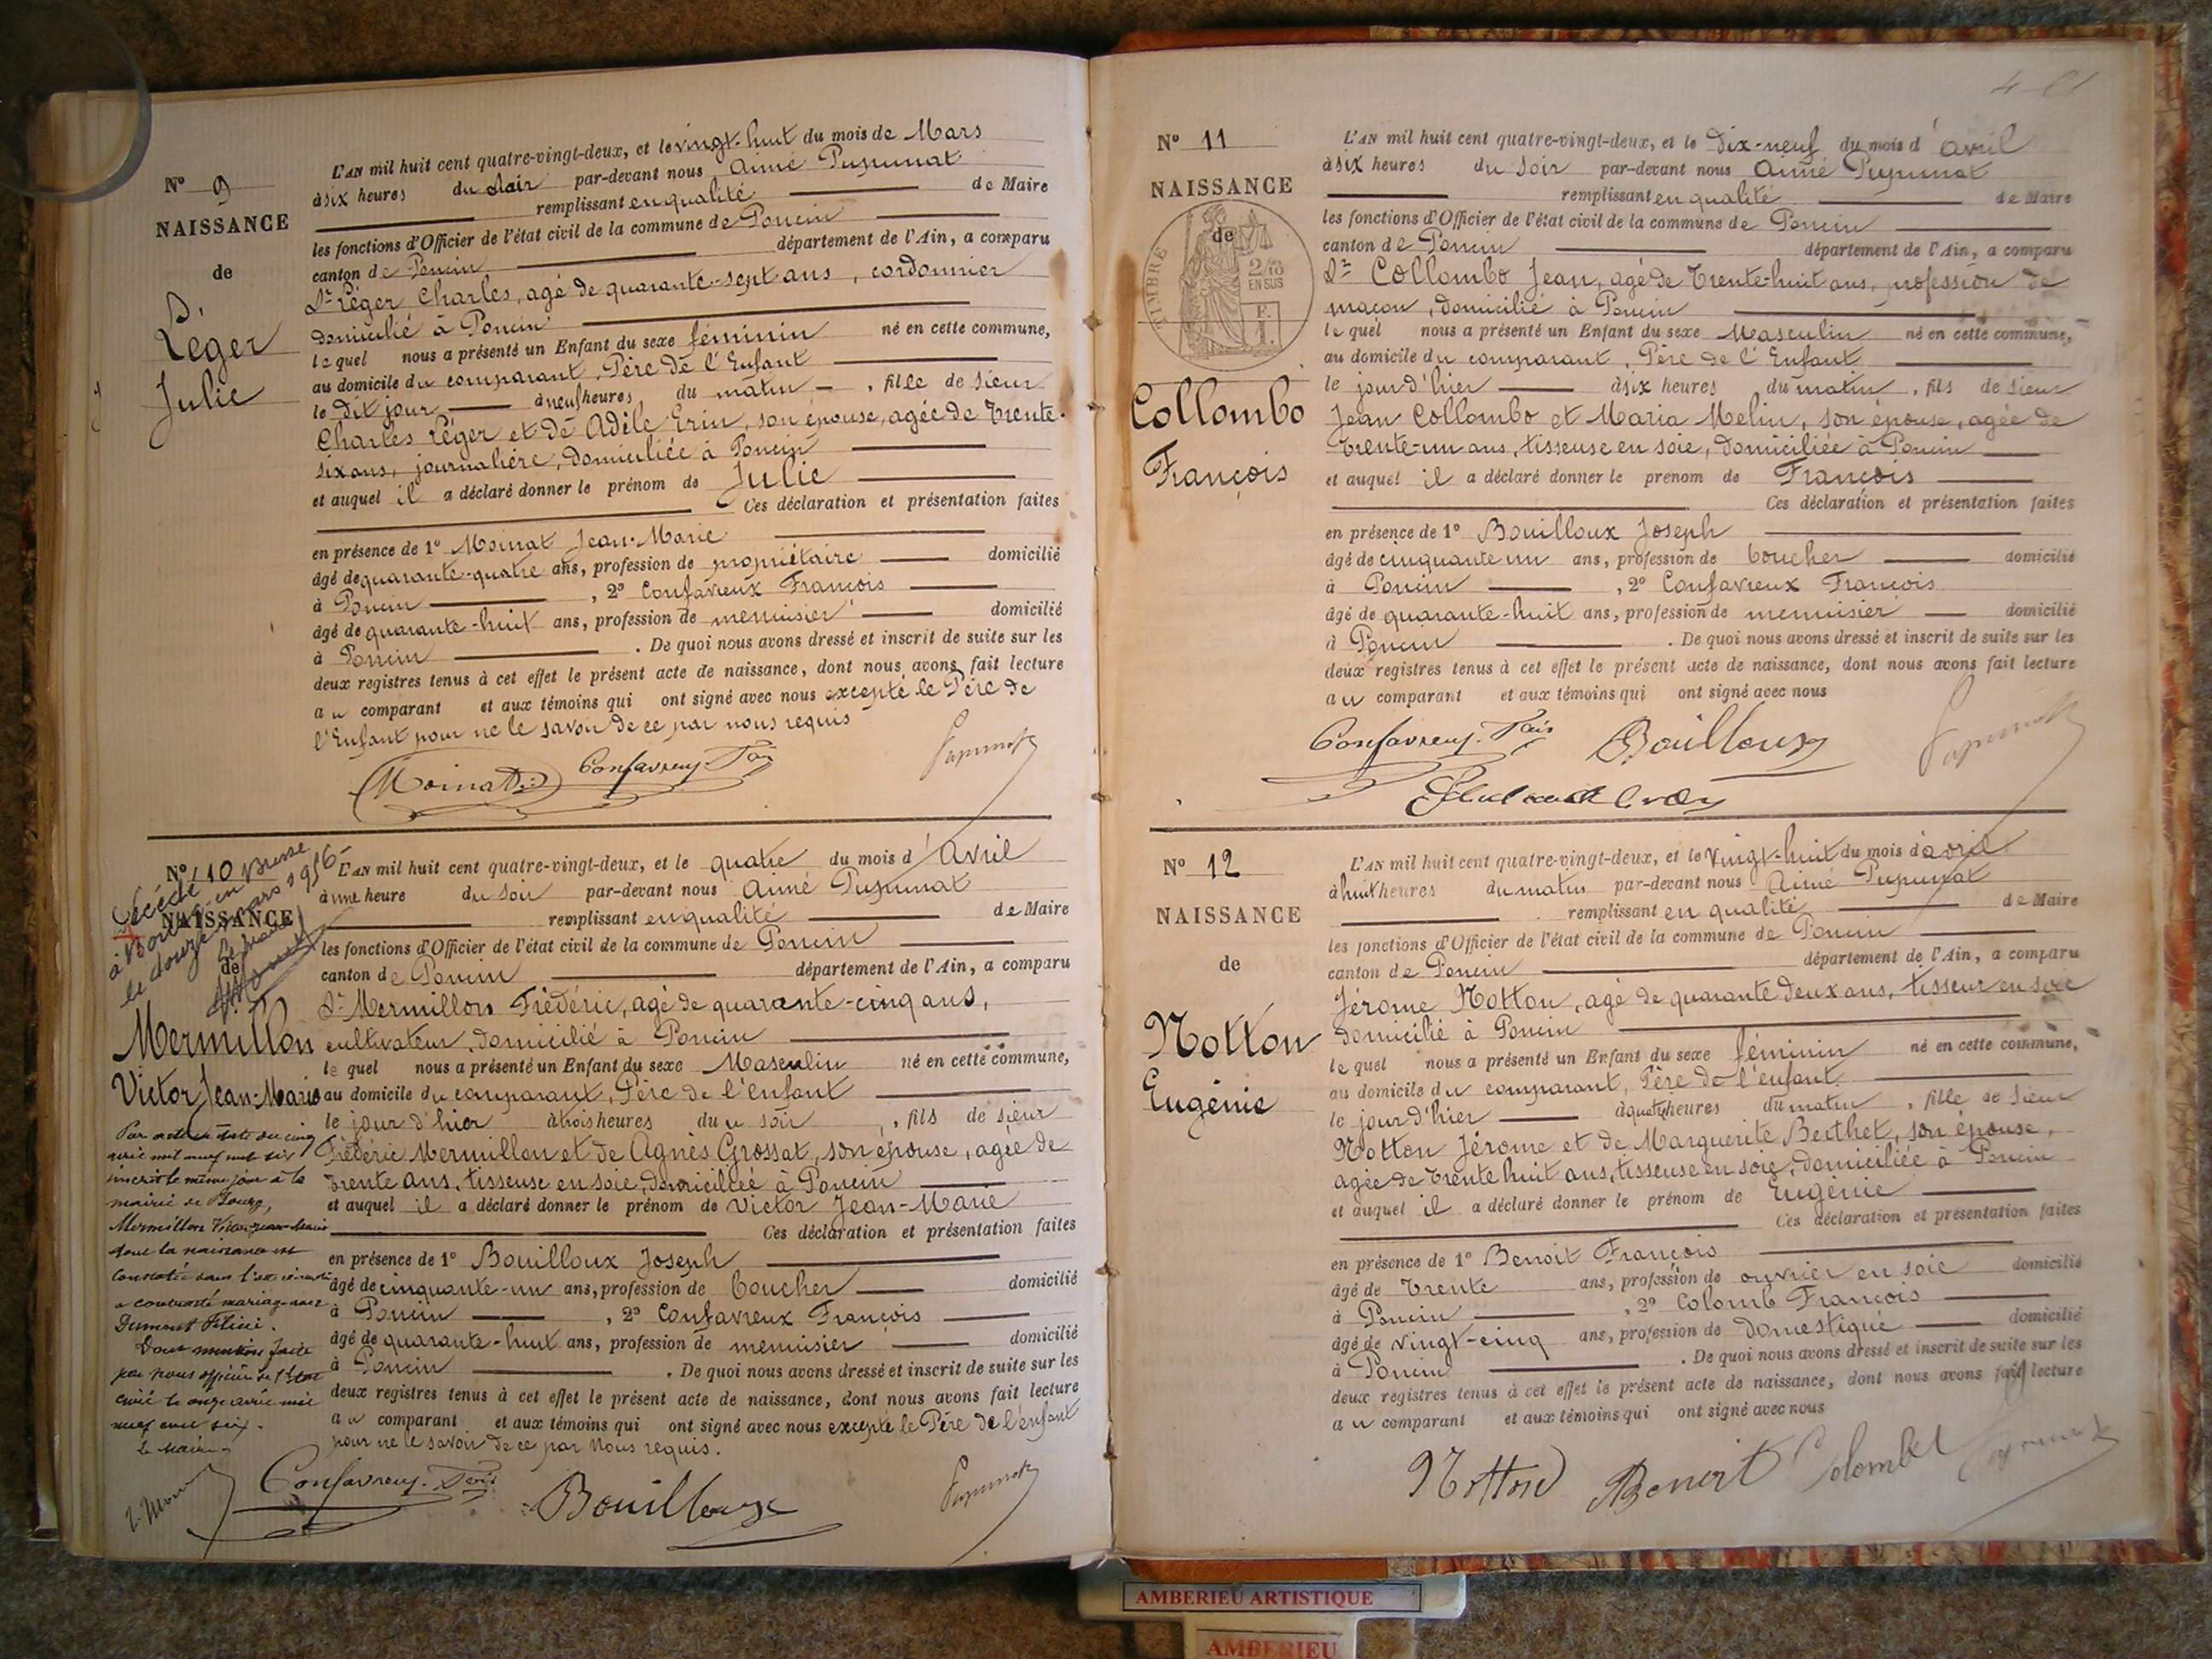 N° 9
NAISSANCE
de
Léger
Julie
L'AN mil huit cent quatre-vingt-deux, et le vingt-huit du mois de Mars
à six heures du soir par-devant nous Aimé Pupunat
remplissant en qualité de Maire
les fonctions d'Officier de l'état civil de la commune de Poncin
canton de Poncin département de l'Ain, a comparu
Sr Léger Charles, agé de quarante-sept ans, cordonnier
domicilié à Poncin
lequel nous a présenté un Enfant du sexe féminin né en cette commune,
au domicile du comparant, Père de l'Enfant
le dit jour à neuf heures du matin, fille de sieur
Charles Léger et de Adèle Erin, son épouse, agée de trente-
six ans, journalière, domiciliée à Poncin
et auquel il a déclaré donner le prénom de Julie
Ces déclaration et présentation faites
en présence de 1° Moinat Jean-Marie
âgé de quarante-quatre ans, profession de propriétaire domicilié
à Poncin, 2° Confavreux François
âgé de quarante-huit ans, profession de menuisier domicilié
à Poncin. De quoi nous avons dressé et inscrit de suite sur les
deux registres tenus à cet effet le présent acte de naissance, dont nous avons fait lecture
au comparant et aux témoins qui ont signé avec nous excepté le Père de
l'Enfant pour ne le savoir de ce par nous requis
Moinat Confavreux Fois Pupunat
N° 10
NAISSANCE
de
Décédé
à Bourg-en-Bresse
le douze mars 1956
Mermillon
Victor Jean-Marie
Par acte en date du cinq
avril mil neuf cent six
inscrit le même jour à la
mairie de Bourg,
Mermillon Victor Jean-Marie
dont la naissance est
constatée dans l'acte ci-contre
a contracté mariage avec
Dumont Félicie.
Dont mention faite
par nous officier de l'Etat
civil le onze avril mil
neuf cent six.
Le Maire
L'AN mil huit cent quatre-vingt-deux, et le quatre du mois d'Avril
à une heure du soir par-devant nous Aimé Pupunat
remplissant en qualité de Maire
les fonctions d'Officier de l'état civil de la commune de Poncin
canton de Poncin département de l'Ain, a comparu
Sr Mermillon Frédéric, agé de quarante-cinq ans,
cultivateur, domicilié à Poncin
lequel nous a présenté un Enfant du sexe Masculin né en cette commune,
au domicile du comparant, Père de l'enfant
le jour d'hier à trois heures du soir, fils de sieur
Frédéric Mermillon et de Agnès Grossat, son épouse, agée de
trente ans, tisseuse en soie, domiciliée à Poncin
et auquel il a déclaré donner le prénom de Victor Jean-Marie
Ces déclaration et présentation faites
en présence de 1° Bouilloux Joseph
âgé de cinquante-un ans, profession de boucher domicilié
à Poncin, 2° Confavreux François
âgé de quarante-huit ans, profession de menuisier domicilié
à Poncin. De quoi nous avons dressé et inscrit de suite sur les
deux registres tenus à cet effet le présent acte de naissance, dont nous avons fait lecture
au comparant et aux témoins qui ont signé avec nous excepté le Père de l'enfant
pour ne le savoir de ce par nous requis.
Confavreux Fois Bouilloux Pupunat
N° 11
NAISSANCE
de
TIMBRE
2/10
EN SUS
Collombo
François
L'AN mil huit cent quatre-vingt-deux, et le dix-neuf du mois d'avril
à six heures du soir par-devant nous Aimé Pupunat
remplissant en qualité de Maire
les fonctions d'Officier de l'état civil de la commune de Poncin
canton de Poncin département de l'Ain, a comparu
Sr Collombo Jean, agé de trente-huit ans, profession de
maçon, domicilié à Poncin
lequel nous a présenté un Enfant du sexe Masculin né en cette commune,
au domicile du comparant, Père de l'Enfant
le jour d'hier à six heures du matin, fils de sieur
Jean Collombo et Maria Melin, son épouse, agée de
trente-un ans, tisseuse en soie, domiciliée à Poncin
et auquel il a déclaré donner le prénom de François
Ces déclaration et présentation faites
en présence de 1° Bouilloux Joseph
âgé de cinquante un ans, profession de boucher domicilié
à Poncin, 2° Confavreux François
âgé de quarante-huit ans, profession de menuisier domicilié
à Poncin. De quoi nous avons dressé et inscrit de suite sur les
deux registres tenus à cet effet le présent acte de naissance, dont nous avons fait lecture
au comparant et aux témoins qui ont signé avec nous
Confavreux Fois Bouilloux Pupunat
N° 12
NAISSANCE
de
Notton
Eugénie
L'AN mil huit cent quatre-vingt-deux, et le vingt-huit du mois d'avril
à huit heures du matin par-devant nous Aimé Pupunat
remplissant en qualité de Maire
les fonctions d'Officier de l'état civil de la commune de Poncin
canton de Poncin département de l'Ain, a comparu
Jérome Notton, agé de quarante deux ans, tisseur en soie
domicilié à Poncin
lequel nous a présenté un Enfant du sexe féminin né en cette commune,
au domicile du comparant, Père de l'enfant.
le jour d'hier à quatre heures du matin, fille de sieur
Notton Jérome et de Marguerite Berthet, son épouse,
agée de trente huit ans, tisseuse en soie, domiciliée à Poncin
et auquel il a déclaré donner le prénom de Eugénie
Ces déclaration et présentation faites
en présence de 1° Benoit François
âgé de trente ans, profession de ouvrier en soie domicilié
à Poncin, 2° Colomb François
âgé de vingt-cinq ans, profession de domestique domicilié
à Poncin. De quoi nous avons dressé et inscrit de suite sur les
deux registres tenus à cet effet le présent acte de naissance, dont nous avons fait lecture
au comparant et aux témoins qui ont signé avec nous
Notton Benoit Colombet Pupunat
AMBERIEU ARTISTIQUE
AMBERIEU